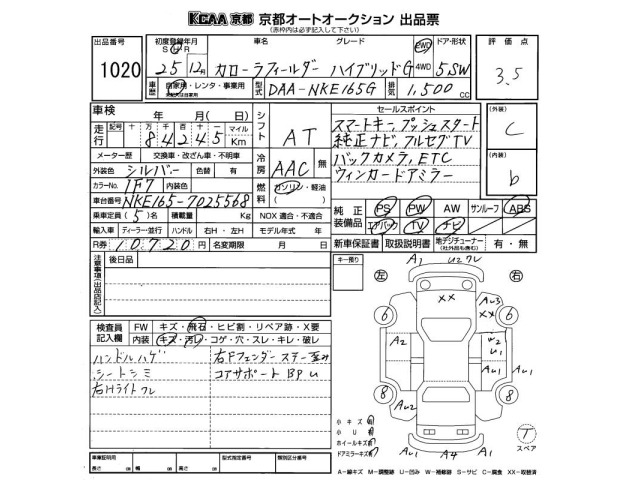 KCAA 京都 京都オートオークション 出品票
(赤枠内は必ず記入して下さい)
出品番号 1020
初度登録年月 車名 グレード ドア・形状 評価点
S H R
25 12月 カローラフィールダー ハイブリッドG 2WD 4WD 5 SW 3.5
車歴 自家用・レンタ・事業用 型式 DAA-NKE165G 排気 1,500 cc
車検 年 月(日) シフト AT
セールスポイント
スマートキー、プッシュスタート
純正ナビ、フルセグTV
バックカメラ、ETC
ウィンカードアミラー
(外装) C
(内装) b
走行 記号 十 万 千 百 十 一 マイル Km
84245
メーター歴 交換車・改ざん車・不明車
外装色 シルバー 色替 有
冷房 AAC 無
カラーNo. 1F7 内装色
燃料 ガソリン・軽油
車台番号 NKE165-7025568
乗車定員 (5)名 積載量 Kg NOX 適合・不適合
輸入車 ディーラー・並行 ハンドル 右H・左H モデル年式 年
R券 10720円 名変期限 月 日
純正装備品 PS PW AW サンルーフ ABS
エアバック TV ナビ
新車保証書 取扱説明書 地デジチューナー(社外品も含む) 有・無
注意事項(出品店記入) 後日品
キー預り
左 右
A1 U2 フレ
XX
AU3
XX
6 6
A2
W2
U1
A1 AU1 AU1
8 8
AU2
A1 A4 AU1
検査員記入欄 FW キズ・飛石・ヒビ割・リペア跡・X要
内装 キズ・汚レ・コゲ・穴・スレ・キレ・破レ
ハンドルハゲ 右Fフェンダーステー歪み
シートシミ コアサポート BP U
右Hライト フレ
小キズ 有
小U 有
ホイールキズ 有
ドアミラーキズ 有
T
スペア
車庫証明用 型式指定番号 類別区分番号
長さ cm 幅 cm 高さ cm
A－線キズ M－調整跡 U－凹み W－補修跡 S－サビ C－腐食 XX－取替済